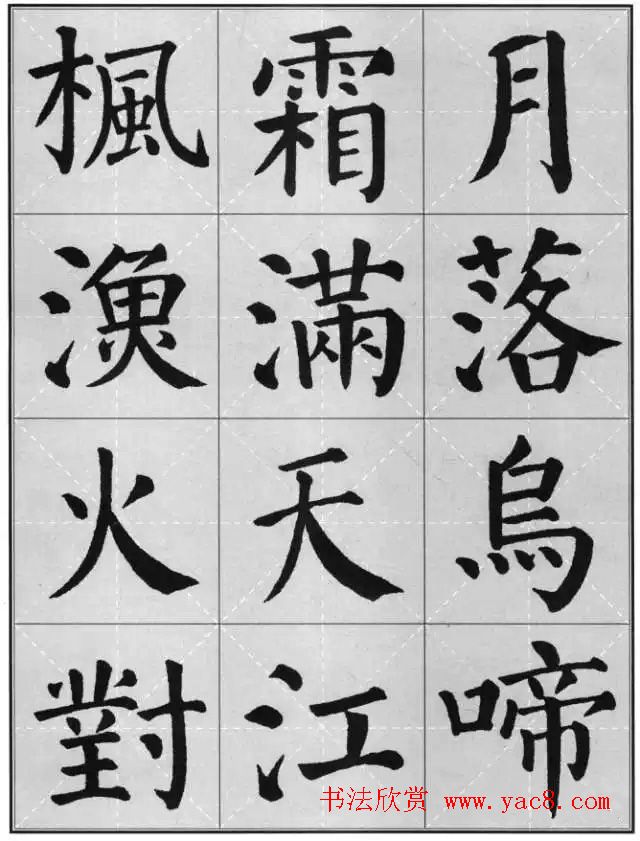 月落烏啼
霜滿天江
楓漁火對
书法欣赏 www.yac8.com